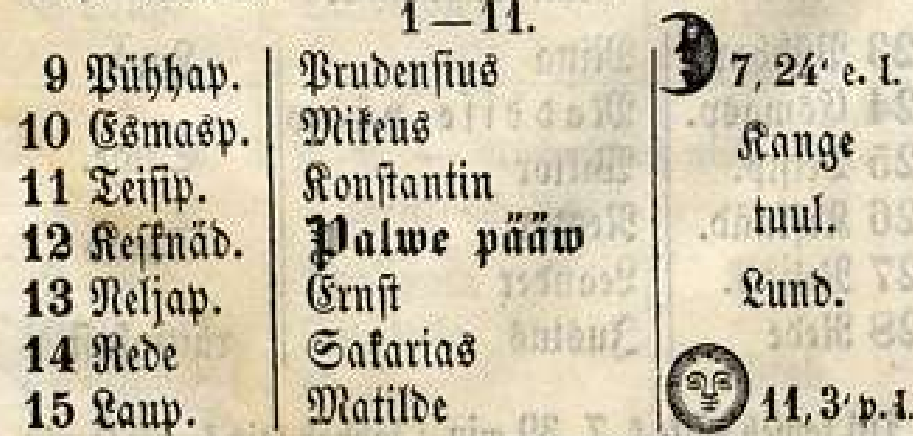 1—11.
9 Pühhap. Prudensius 7, 24' e. l.
10 Esmasp. Mikeus Kange
11 Teisip. Konstantin
12 Kesknäd. Palwe pääw tuul.
13 Neljap. Ernst Lund.
14 Rede Sakarias
15 Laup. Matilde 11, 3' p. l.